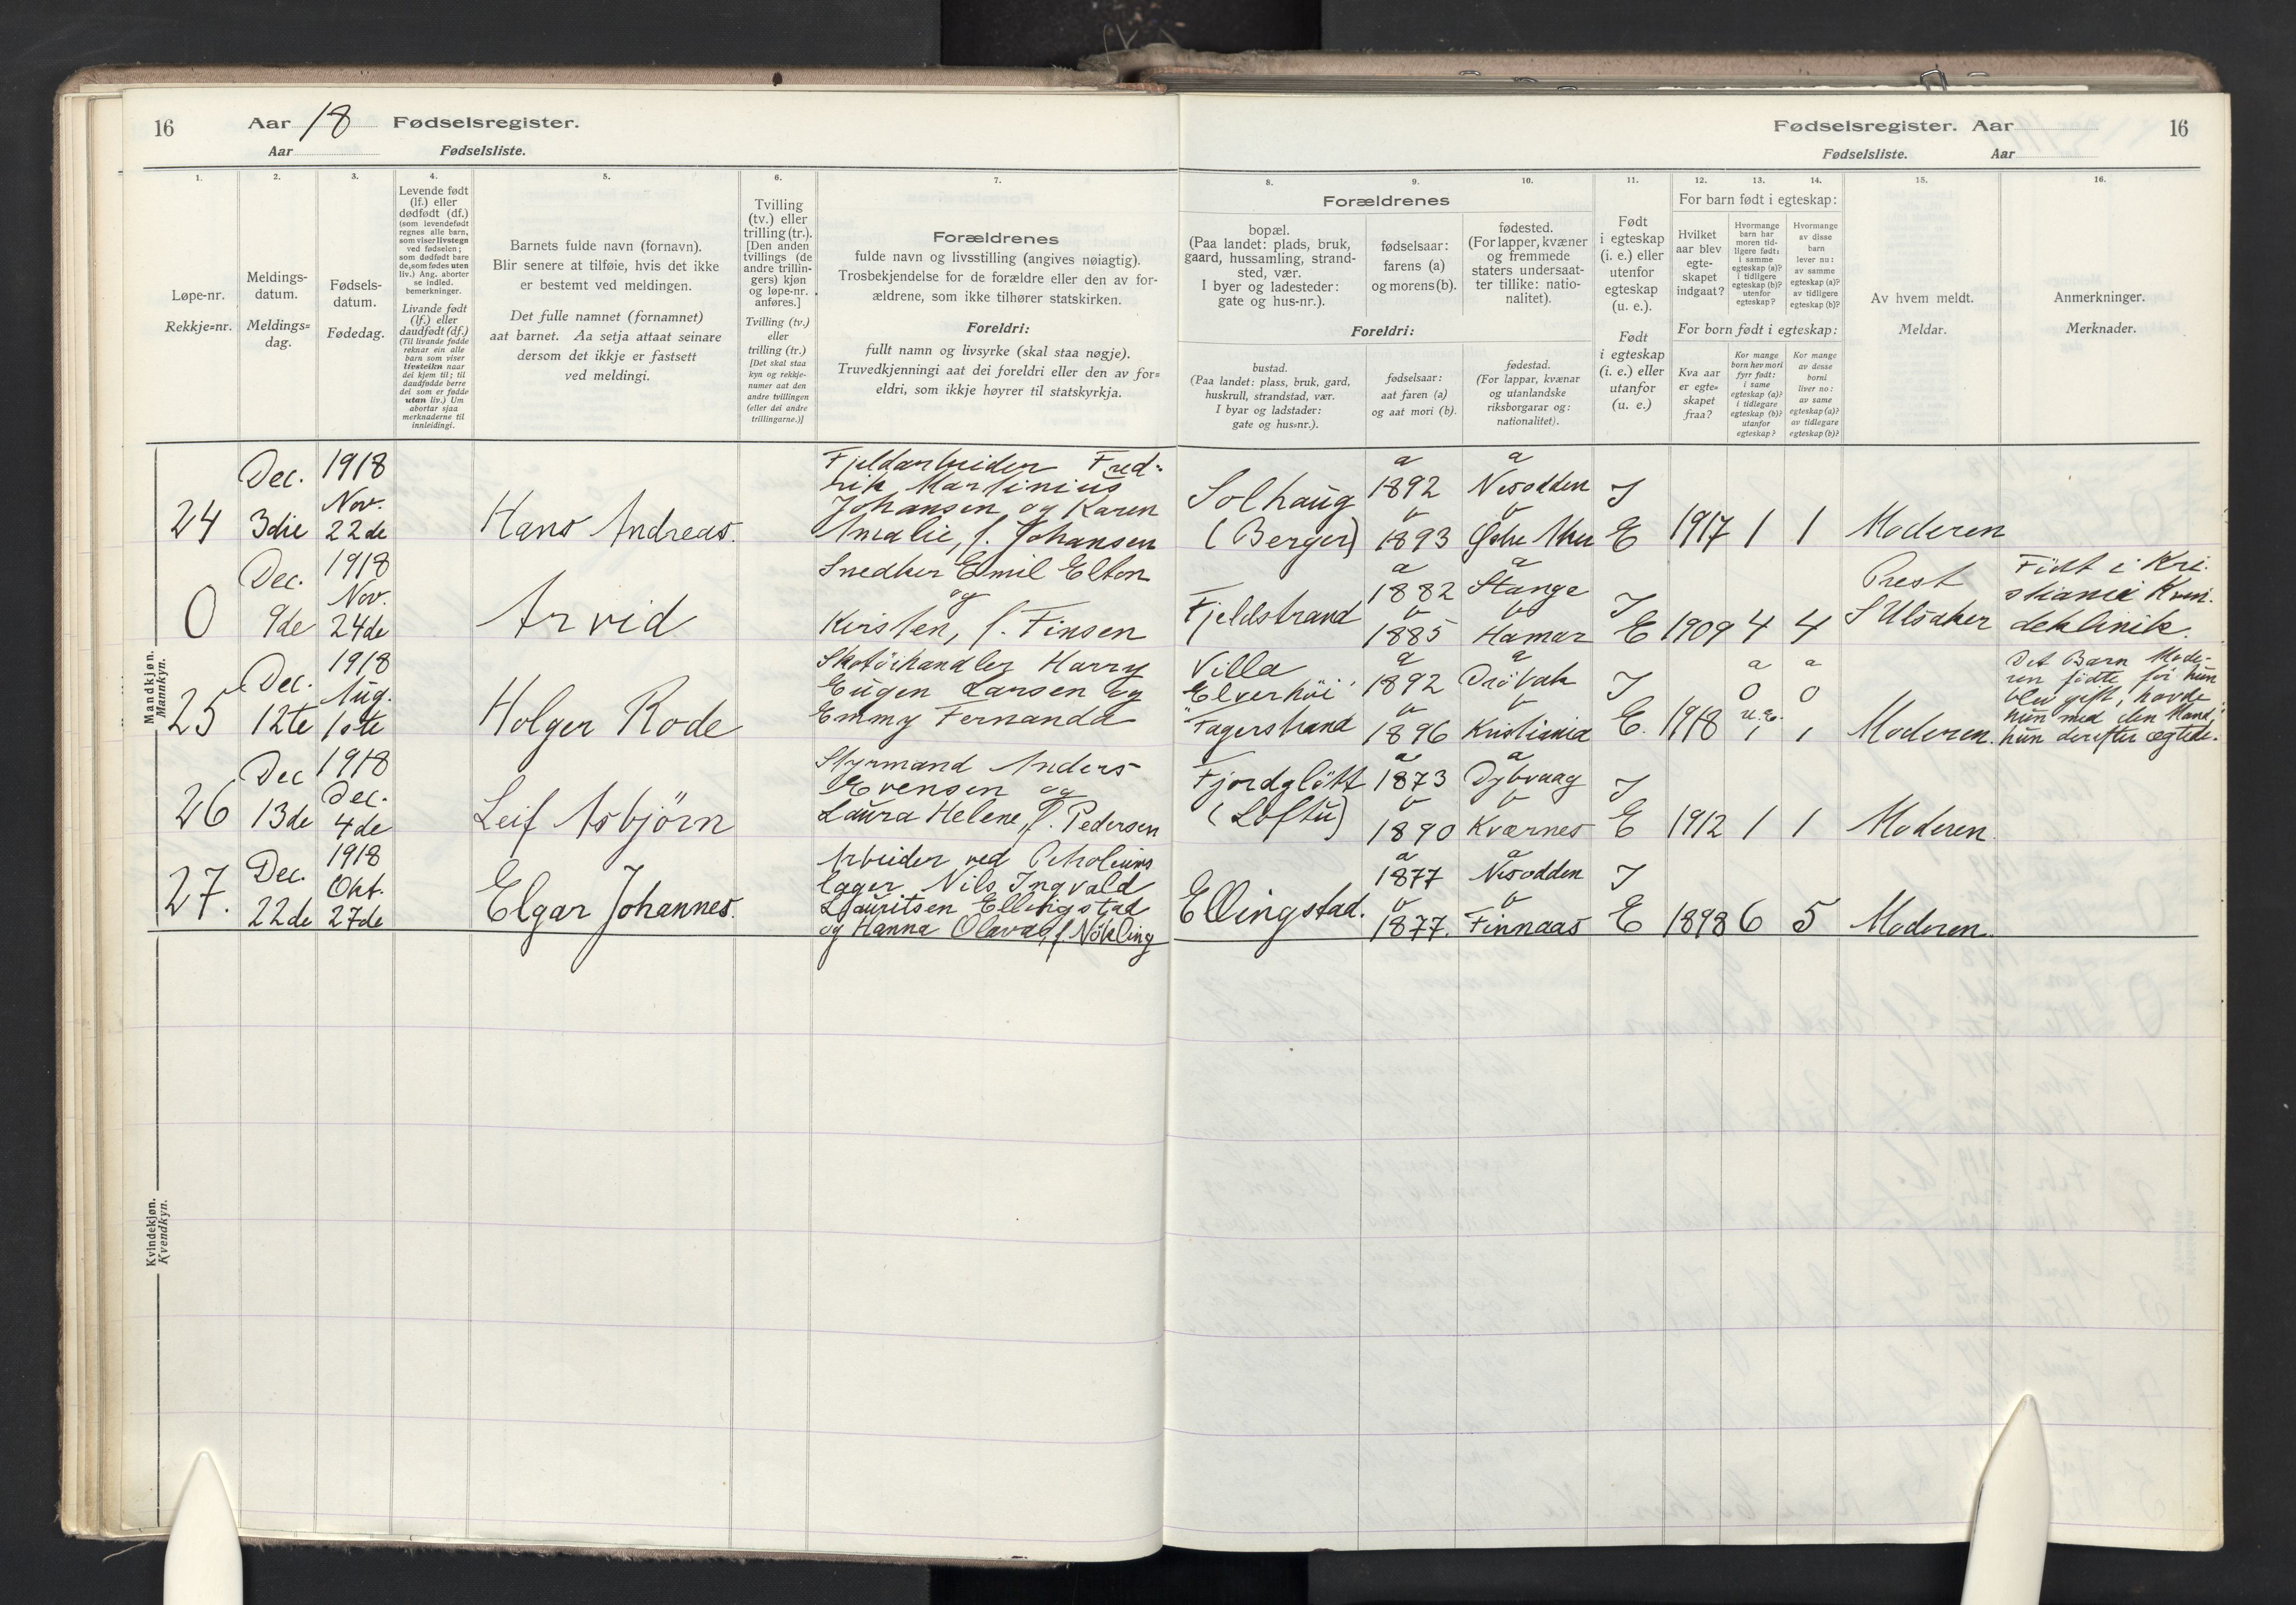 16
Aar 18 Fødselsregister.
Aar Fødselsliste.
Fødselsregister. Aar
Fødselsliste. Aar
16
1.
Løpe-nr.
Rekkje-nr.
2.
Meldings-
datum.
Meldings-
dag.
3.
Fødsels-
datum.
Fødedag.
4.
Levende født
(lf.) eller
dødfødt (df.)
(som levendefødt
regnes alle barn,
som viser livstegn
ved fødselen;
som dødfødt bare
de, som fødes uten
liv.) Ang. aborter
se indled.
bemerkninger.
Livande født
(lf.) eller
daudfødt (df.)
(Til livande fødde
reknar ein alle
barn som viser
livsteikn naar
dei kjem til; til
daudfødde berre
dei som er fødde
utan liv.) Um
abortar sjaa
merknaderne til
innleidingi.
5.
Barnets fulde navn (fornavn).
Blir senere at tilføie, hvis det ikke
er bestemt ved meldingen.
Det fulle namnet (fornamnet)
aat barnet. Aa setja attaat seinare
dersom det ikkje er fastsett
ved meldingi.
6.
Tvilling
(tv.) eller
trilling (tr.).
[Den anden
tvillings (de
andre trillin-
gers) kjøn
og løpe-nr.
anføres.]
Tvilling (tv.)
eller
trilling (tr.)
[Det skal staa
kyn og rekkje-
numer aat den
andre tvillingen
(eller dei andre
trillingarne.)]
7.
Forældrenes
fulde navn og livsstilling (angives nøiagtig).
Trosbekjendelse for de forældre eller den av for-
ældrene, som ikke tilhører statskirken.
Foreldri:
fullt namn og livsyrke (skal staa nøgje).
Truvedkjenningi aat dei foreldri eller den av for-
eldri, som ikkje høyrer til statskyrkja.
Forældrenes
8.
bopæl.
(Paa landet: plads, bruk,
gaard, hussamling, strand-
sted, vær.
I byer og ladesteder:
gate og hus-nr.).
9.
fødselsaar:
farens (a)
og morens (b).
10.
fødested.
(For lapper, kvæner
og fremmede
staters undersaat-
ter tillike: natio-
nalitet).
Foreldri:
bustad.
(Paa landet: plass, bruk, gard,
huskrull, strandstad, vær.
I byar og ladstader:
gate og hus-nr.).
fødselsaar:
aat faren (a)
og aat mori (b).
fødestad.
(For lappar, kvænar
og utanlandske
riksborgarar og:
nationalitet).
11.
Født
i egteskap
(i. e.) eller
utenfor
egteskap
(u. e.).
Født
i egteskap
(i. e.) eller
utanfor
(u. e.)
For barn født i egteskap:
12.
Hvilket
aar blev
egte-
skapet
indgaat?
13.
Hvormange
barn har
moren tid-
ligere født:
i samme
egteskap (a)?
i tidligere
egteskap (b)?
utenfor
egteskap?
14.
Hvormange
av disse
barn
lever nu:
av samme
egteskap (a)?
av tidligere
egteskap (b)?
For born født i egteskap:
Kva aar
er egte-
skapet
fraa?
Kor mange
born hev mori
fyrr født:
i same
egteskap (a)?
i tidlegare
egteskap (b)?
utanfor
egteskap?
Kor mange
av desse
borni
liver no:
av same
egteskap (a)?
av tidlegare
egteskap (b)?
15.
Av hvem meldt.
Meldar.
16.
Anmerkninger.
Merknader.
Mandkjøn.
Mannkyn.
24
Dec.
3die
1918
Nov.
22de
Hans Andreas.
Fjeldarbeider Fred-
rik Martinius
Johansen og Karen
Amalie, f. Johansen
Solhaug
(Berger)
a
1892
b
1893
a
Nesodden
b
I
E
1917
1
1
Moderen
0
Dec.
9de
1918
Nov.
24de
Arvid
Snedker Emil Elton
og
Kirsten, f. Finsen
Fjeldstrand
a
1882
b
1885
a
Stange
b
Hamar
I
E
1909
4
4
Prest
S Ulsaker
Födt i Kri-
stiania Kvin-
deklinik.
25
Dec.
12te
1918
Aug.
1ste
Holger Rode
Skotöihandler Harry
Eugen Larsen og
Emmy Fernanda
Villa
"Elverhöi"
Fagerstrand
a
1892
b
1896
a
Dröbak
b
Kristiania
I
E.
1918
a
0
u.e.
1
a
0
1
Moderen.
Det Barn Mode-
ren födte för hun
blev gift, havde
hun med den Mand,
hun derefter ægtede.
26
Dec
13de
1918
Dec.
4de
Leif Asbjörn
Styrmand Anders
Evensen og
Laura Helene, f. Pedersen
Fjordglött
(Loftu)
a
1873
b
1890
a
Dybvaag
b
Kværnes
I
E
1912
1
1
Moderen.
27.
Dec.
22de
1918
Okt.
27de
Elgar Johannes.
Arbeider ved Petroleums
lager Nils Ingvald
Lauritsen Ellingstad
og Hanna Olava, f. Nökling
Ellingstad.
a
1877
b
1877.
a
Nesodden
b
Finnaas
I
E
1898
6
5
Moderen.
Kvindekjøn.
Kvendkyn.